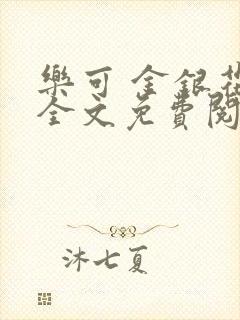 樂可 金銀花
全文免費閱
沐七夏